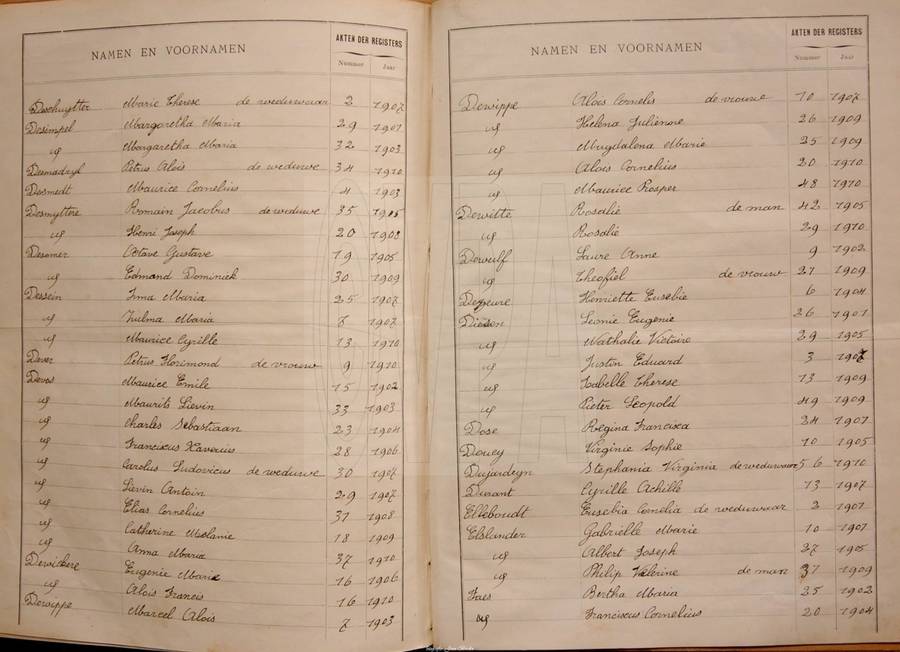 NAMEN EN VOORNAMEN AKTEN DER REGISTERS
Nummer Jaar
Deschuytter Marie Therese de weduwaar 2 1907
Desimpel Margaretha Maria 29 1901
id Margaretha Maria 32 1903
Desmadryl Petrus Alois de weduwe 34 1910
Desmedt Maurice Cornelius 4 1903
Desmyttere Romain Jacobus de weduwe 35 1905
id Henri Joseph 20 1908
Desomer Octave Gustave 19 1905
id Edmond Dominick 30 1909
Dessein Irma Maria 25 1907
id Zulma Maria 7 1907
id Maurice Cyrille 13 1910
Dever Petrus Florimond de vrouw 9 1910
Devos Maurice Emile 15 1902
id Maurits Lievin 33 1903
id Charles Sebastiaan 23 1904
id Franciscus Xaverius 28 1906
id Carolus Ludovicus de weduwe 30 1907
id Lievin Antoin 29 1907
id Elias Cornelius 31 1908
id Catherine Melanie 18 1909
id Anna Maria 37 1910
Dewickere Eugenie Marie 16 1906
id Alois Francis 16 1910
Dewippe Marcel Alois 7 1903
NAMEN EN VOORNAMEN AKTEN DER REGISTERS
Nummer Jaar
Dewippe Alois Cornelis de vrouwe 10 1907
id Helena Julienne 26 1909
id Magdalena Marie 25 1909
id Alois Cornelius 20 1910
id Maurice Prosper 48 1910
Dewitte Rosalie de man 42 1905
id Rosalie 29 1910
Dewulf Laure Anne 9 1902
id Theofiel de vrouw 27 1909
Henriette Eusebie 6 1904
Leonie Eugenie 26 1901
id Nathalie Victoire 29 1905
id Justin Eduard 3 1907
id Isabelle Therese 13 1909
id Pieter Leopold 49 1909
Dose Regina Francisca 24 1907
Douey Virginie Sophie 10 1905
Dujardeyn Stephania Virginia de weduwaar 56 1910
Durant Cyrille Achille 13 1907
Elleboudt Eusebia Cornelia de weduwaar 2 1901
Elslander Gabrielle Marie 10 1901
id Albert Joseph 27 1905
id Philip Valerine de man 37 1909
Faes Bertha Maria 25 1902
id Franciscus Cornelius 20 1904